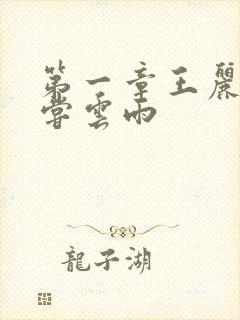 第一章王麗
嘗雲雨
龍子湖